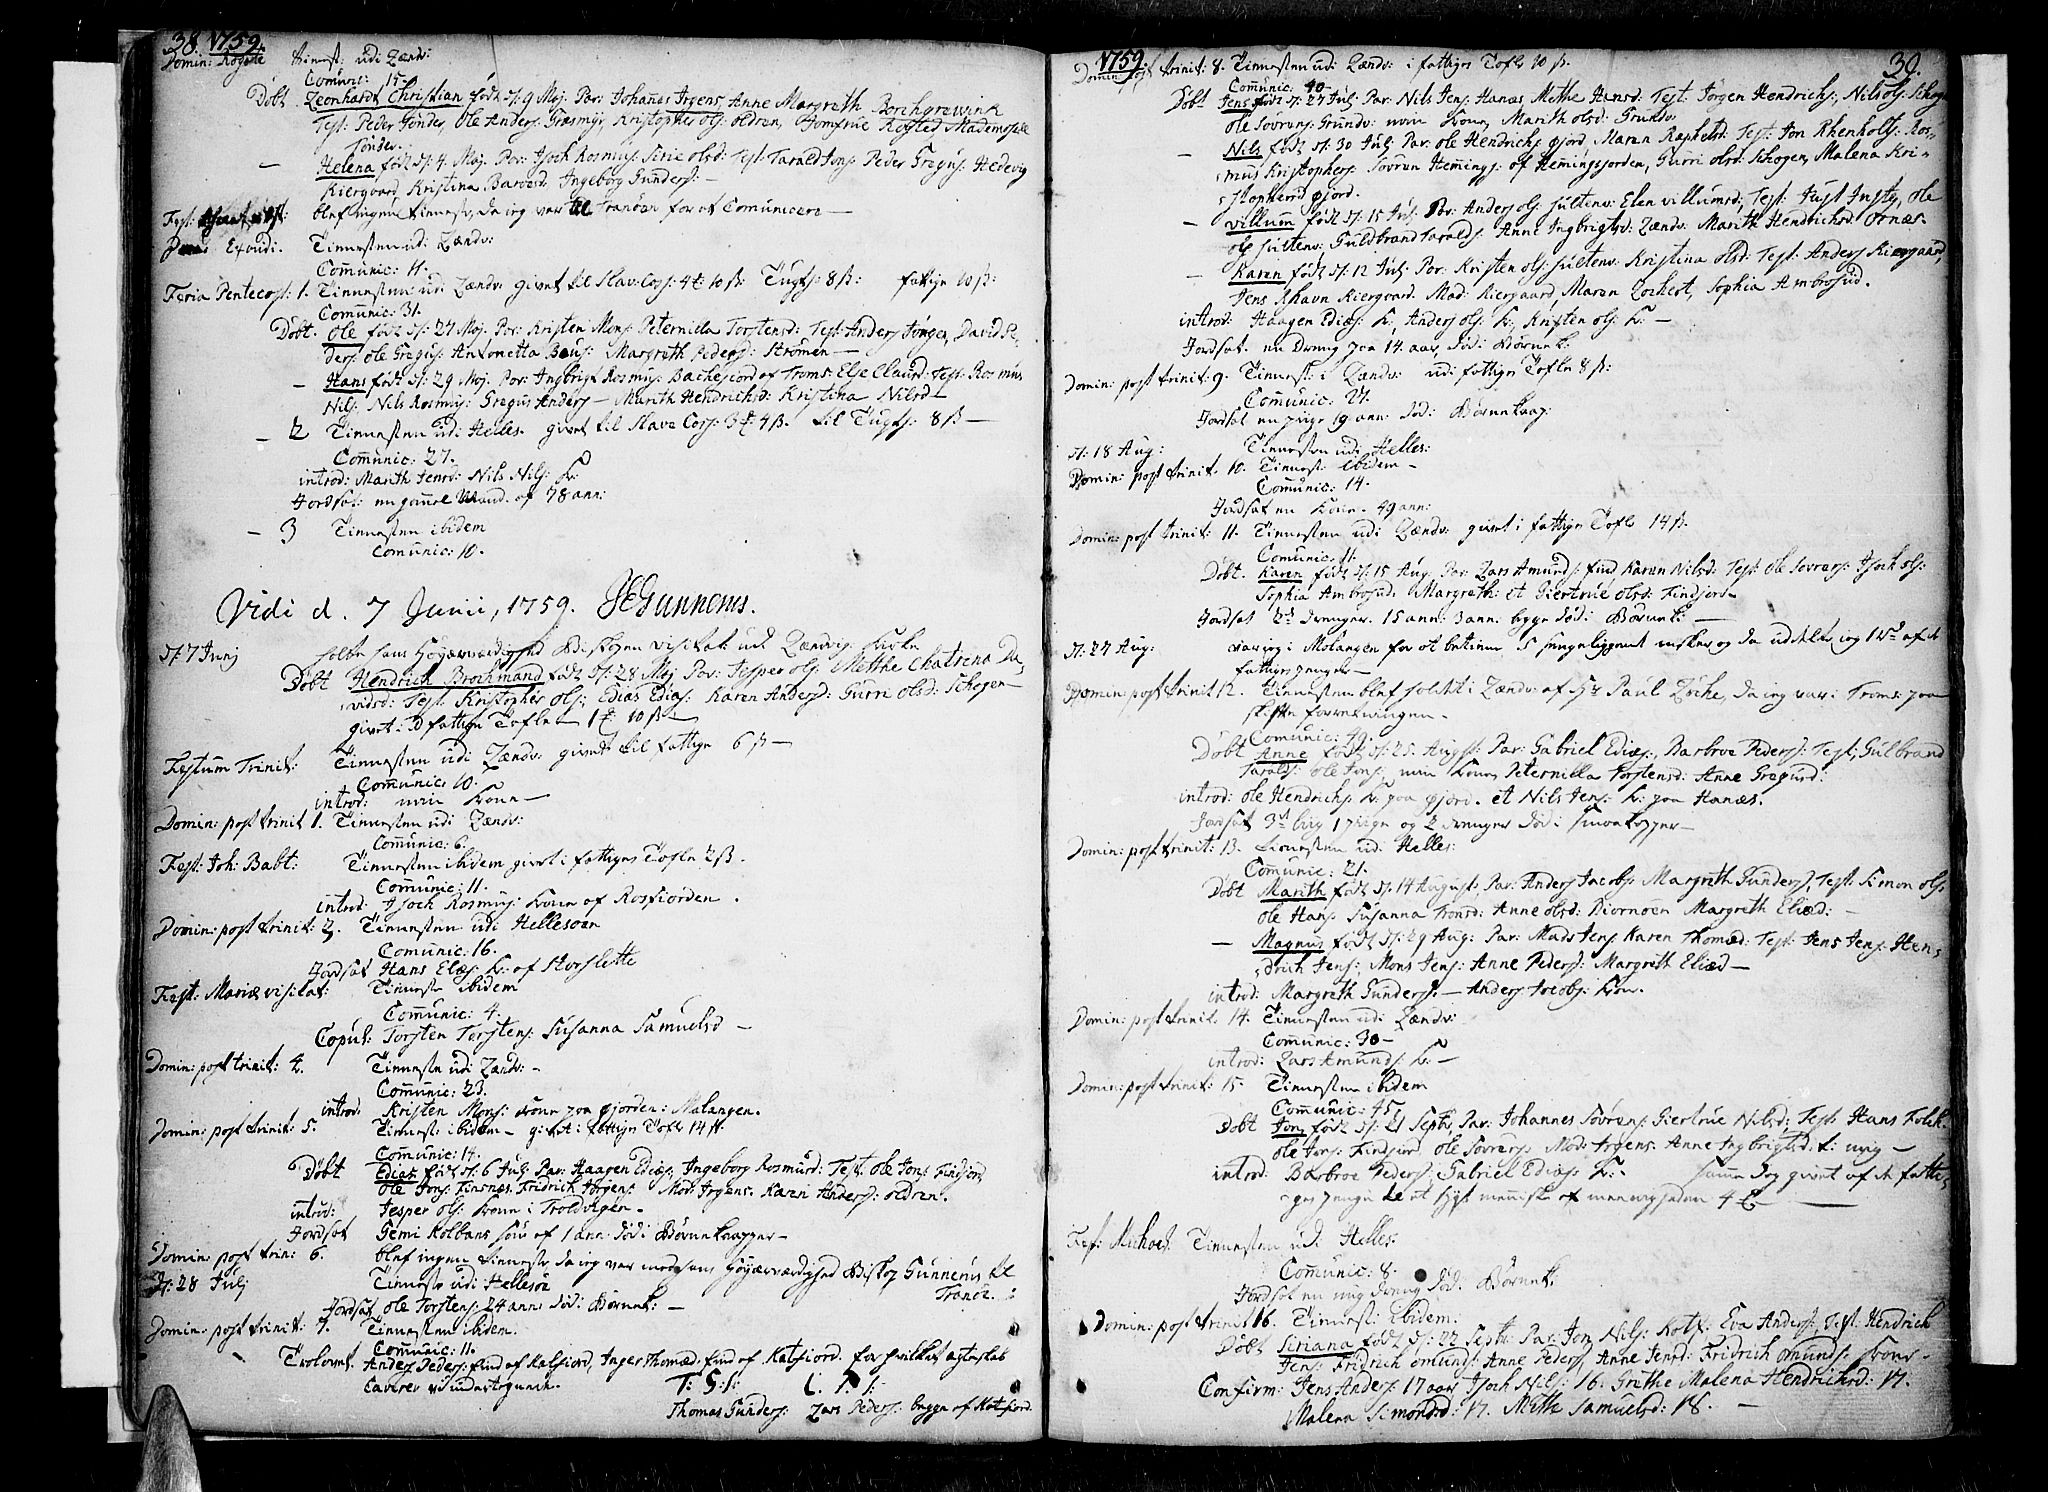 38. 1759.
Domin: Rogate tienest: udi Lændv:
Comunic: 15.
Döbt Leonhardt Christian födt d: 9 Maj. Par: Johanes Irgens, Anne Margreth Borchgrewink
Test: Peder Jönder, Ole Anders: Græsmÿr, Kristopher ols: oldren, Jomfrue Rogsted Mademoiselle
Jönder.
— Helena födt d: 4. Maj. Par: Isach Rasmus: Sirie olsd: Test: Tarald Jons: Peder Gregus: Hedevig
Kiergaard, Kristina Barosd. Ingeborg Gunders: —
Fest: blef ingen tienneste, da ieg var til Tranöen for at Comunicere —
Exaudi. Tiennesten udi Lændv:
Comunic: 11.
Feria Pentecost: 1. Tiennesten udi Lændv: givet til Slav: Cass: 4 10 ß: Tugts: 8 ß: fattige 10 ß:
Comunic: 31.
Döbt. Ole födt d: 27 Maj. Par: Kristen Mons: Peternilla Torstensd: Test: Anders Jönger, David Pe,
ders: ole Gregus: Antonetta Beus: Margreth Peders: Strömen —
— Hans födt d: 29 Maj. Par: Ingbrigt Rasmus: Bachejord af Troms: Else Clausd: Test: Rasmus
Nils: Nils Rasmus: Gregus Anders — Marith Hendrichsd: Kristina Nilsd —
— 2 Tiennesten udi Helles. givet til Slave Cass: 3 4 ß. til Tugts: 8 ß —
Comunic: 27.
introd: Marith Jensd: Nils Nils: K:
Jordsat: en gamel Mand. af 78 ann:
— 3 Tiennesten ibidem
Comunic: 10.
Vidi d. 7 Junii, 1759. JEGunnerus.
d: 7 Junj holte hans Höyærværdighed Biskopen visitats udi Lændvigs Kirke
Döbt Hendrich Brochmand födt d: 28 Maj Par: Jesper ols: Methe Chatrina Da,
vidsd: Test: Kristopher ols: Edias Edias: Karen Andersd: Gurri olsd: Schogen —
givet: D fattige Tofle — 1 10 ß —
Festum Trinit: Tiennesten udi Lændv: givet til fattige 6 ß —
Comunic: 10.
introd: min kone —
Domin: post trinit 1. Tiennesten udi Lændv:
Comunic: 6.
Fest: Joh: Babt: Tiennesten ibidem givet i fattiges Tofle 2 ß.
Comunic: 11.
introd: Isach Rasmus: kone af Rosfiorden.
Domin: post trinit: 2. Tiennesten udi Hellesöen
Comunic: 16.
Jordsat Hans Elæs: K: af Storslette
Fest: Mariæ visitat: Tienneste ibidem
Comunic: 4.
Copul: Torsten Torstens: Susanna Samuelsd —
Domin: post trinit: 4. Tienneste udi Lændv: —
Comunic: 23.
introd: Kristen Mons: kone paa Öjorden: Malangen.
Domin: post trinit: 5. Tiennest: ibidem — givet i fattiges Tofle 14 ß.
Comunic: 14.
Döbt Edias födt d: 6 Juli Par: Haagen Edias: Ingeborg Rasmusd: Test: Ole Jons: Findjord
Ole Jons: Finsnes, Fridrich Jörgens: Mad: Irgens. Karen Anders: oldren.
introd: Jesper ols: kone i Troldvigen.
Jordsat Gemi Kolbans sön af 1 ann: död i Börnekopper —
Domin: post trin: 6. blef ingen tienneste, da ieg var med hans Höyærværdighed Biskop Gunnerus til
Tranöe.
d: 28 Julj Tienneste udi Hellesöe
Jordsat Ole Torstens: 24 ann: död i Börnek: —
Domin: post trinit: 7. Tiennesten ibidem.
Comunic: 11.
Trolovet Anders Peders: find af Kalfiord, Inger Thomæd. find af Katfiord. for hvilket ægteskab
Caverer vi undertegnede. T: S: I: L. P. I:
Thomas Gunders: Lars Peders: begge af Katfiord.
1759. 39.
Domin: post trinit: 8. Tiennesten udi Lændv: i fattiges Tofle 10 ß.
Comunic: 40.
Döbt Jens födt d: 27 Juli Par: Nils Jens: Hanæs Methe Hansd: Test: Jörgen Hendrichs:, Nils ols: Schoge
Ole Sövrens: Grundv: min kone, Marith olsd: Grundv:
— Nils födt d: 30 Juli Par: ole Hendrichs: Öjord, Maren Raphelsd: Test: Jon Rhenholts: Ras=
mus Kristophers: Sövren Hemings: af Hemingsjorden, Gurri olsd: Schogen, Malena Kri=
stophersd Öjord.
— Villum födt d: 15 Juli Par: Anders ols: Gultenv: Elen villumsd; Test: Just Justs, Ole
ols Gultenv: Guldbrand Taralds: Anne Ingbrigtsd: Lændv: Marith Hendrichsd: Sonæs.
— Karen födt d: 12 Juli Par: Kristen ols: Gultenv: Kristina olsd: Test: Anders Kiergaard,
Jens Rhavn Kiergaard. Mad: Kiergaard, Maren Lochert, Sophia Ambrosiid.
introd: Haagen Edias: K:, Anders ols: K:, Kristen ols: K: —
Jordsat. en dreng paa 14. aar, död i Börnek:
Domin: post trinit: 9. Tiennest: i Lændv: udi fattiges Tofle 8 ß:
Comunic: 27.
Jordsat en pige 19 ann: död: Börnekop:
d: 18 Aug: Tiennesten udi Helles:
Domin: post trinit. 10. Tiennest: ibidem —
Comunic: 14.
Jordsat en kone. 49 ann:
Domin: post trinit: 11. Tiennesten udi Lændv: givet i fattige Tofle 14 ß.
Comunic: 11.
Döbt. Karen födt d: 15 Aug Par: Lars Amunds: find Karen Nilsd: Test: Ole Sovrers: Isach ols:
Sophia Ambrosiid. Margreth: et Giertrüe olsd: Findjord —
Jordsat 2de drenger. 15 ann: 3 ann: begge död i Börnek: —
d: 27 Aug: var ieg i Malangen for at betiene 5 sengeliggende mesker og da uddelte ieg 1 rd af de
fattiges penger —
Domin: post trinit 12. Tiennesten blef holdt i Lændv: af Hr Paul Löche, da ieg var i Troms: paa
skifte forretningen.
Comunic: 19.
Döbt Anne födt d: 25. August: Par: Gabriel Edias:, Barbroe Peders: Test: Gulbrand
Taralds: ole Jons: min kone, Peternilla Torstensd: Anne Gregusd:
introd: Ole Hendrichs: K: paa Öjord. et Nils Jens: K: paa Hanæs.
Jordsat 3de liig 1 pige og 2 drenger död i smaakopper —
Domin: post trinit: 13. tiennesten udi Helles:
Comunic: 21.
Döbt Marith födt d: 14 August; Par: Anders Jacobs: Margreth Gunders; Test: Simon ols.
Ole Hans: Susanna Tronsd: Anne olsd: Biornöen Margreth Eliæd: —
— Magnus födt d: 29 Aug: Par: Mads Jens: Karen Thomæd: Test: Jens Jens: Hen,
drich Jens:, Mons Jens: Anne Peders: Margreth Eliæd —
introd: Margreth Gunders: — Anders Jacobs: kone.
Domin: post trinit. 14. Tiennesten udi Lændv:
Comunic: 30 —
introd: Lars Amunds: K: —
Domin: post trinit: 15. Tiennesten ibidem
Comunic: 45.
Döbt Jon, födt d: 21 Septr, Par: Johannes Sövrens: Giertrüe Nilsd; Test: Hans Falch.
Ole Jons: Findjord, Ole Sovrers: Mad: Irgens: Anne Ingbrigtsd: K: mig —
introd: Barbroe Peders: Gabriel Edias: K: — samme Dag givet af de fatti,
ges penge til et sygt menniske af menigheden 4 —
Fest: Michael. Tiennesten udi Helles:
Comunic: 8.
Jordsat en ung dreng död. Börnek:
Domin: post trinit 16. Tiennest: ibidem.
Döbt Siriana födt d: 22 Septr: Par: Jon Nils: Kotf: Eva Anders:, Test: Hendrich
Jens: Fridrich omunds: Anne Peders, Anne Jensd: Fridrich omunds: kone.
Confirm: Jens Anders: 17 aar, Isach Nils: 16. Grethe Malena Hendrichsd: 17.
Malena Simonsd: 17. Mette Samuelsd: 18. —